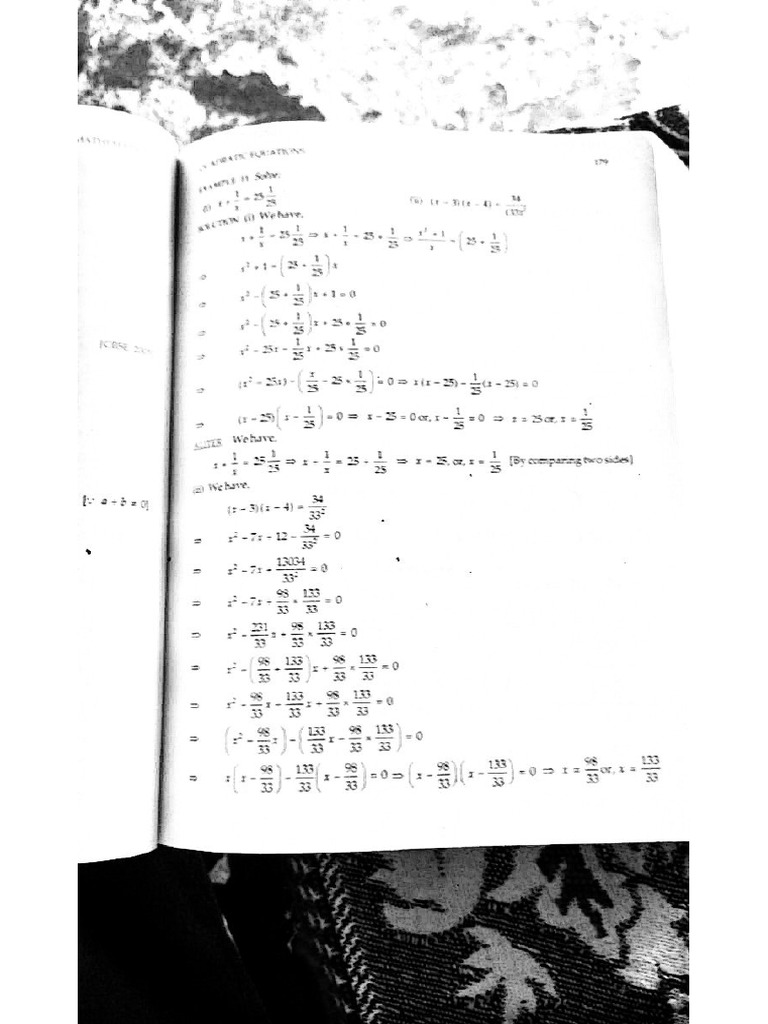 QUADRATIC EQUATIONS 179
EXAMPLE 11 Solve.
(i) x + 1/x = 25 1/25 (ii) (x − 3)(x − 4) = 34/(33)²
SOLUTION (i) We have,
x + 1/x = 25 1/25 ⇒ x + 1/x = 25 + 1/25 ⇒ (x² + 1)/x = (25 + 1/25)
⇒ x² + 1 = (25 + 1/25)x
⇒ x² − (25 + 1/25)x + 1 = 0
⇒ x² − (25 + 1/25)x + 25 × 1/25 = 0
⇒ x² − 25x − 1/25 x + 25 × 1/25 = 0
⇒ (x² − 25x) − (x/25 − 25 × 1/25) = 0 ⇒ x(x − 25) − 1/25 (x − 25) = 0
⇒ (x − 25)(x − 1/25) = 0 ⇒ x − 25 = 0 or, x − 1/25 = 0 ⇒ x = 25 or, x = 1/25
ALITER We have,
x + 1/x = 25 1/25 ⇒ x + 1/x = 25 + 1/25 ⇒ x = 25, or, x = 1/25 [By comparing two sides]
(ii) We have,
(x − 3)(x − 4) = 34/33²
⇒ x² − 7x + 12 − 34/33² = 0
⇒ x² − 7x + 13034/33² = 0
⇒ x² − 7x + 98/33 × 133/33 = 0
⇒ x² − 231/33 x + 98/33 × 133/33 = 0
⇒ x² − (98/33 + 133/33)x + 98/33 × 133/33 = 0
⇒ x² − 98/33 x − 133/33 x + 98/33 × 133/33 = 0
⇒ (x² − 98/33 x) − (133/33 x − 98/33 × 133/33) = 0
⇒ x(x − 98/33) − 133/33 (x − 98/33) = 0 ⇒ (x − 98/33)(x − 133/33) = 0 ⇒ x = 98/33 or, x = 133/33
[CBSE
[∵ a + b ≠ 0]